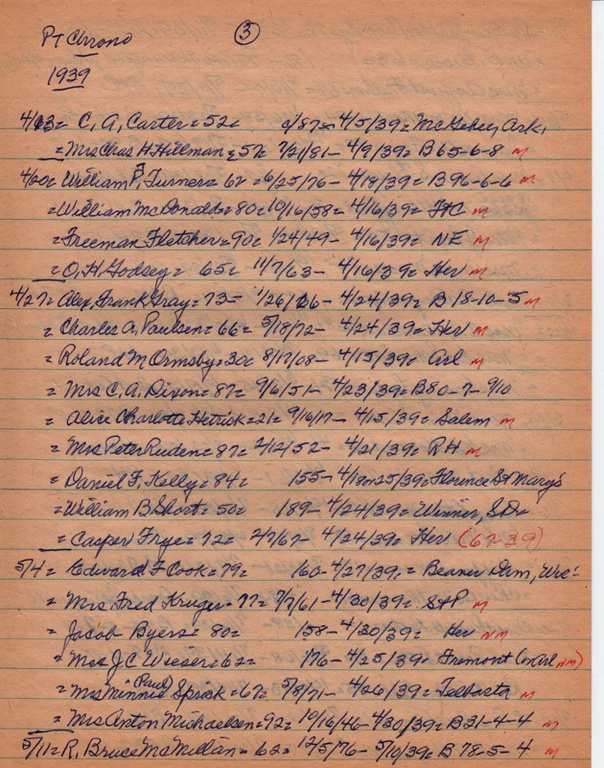 Pt Chrono ③
1939
4/13= C, A, Carter= 52= /87= 4/5/39= McGehee, Ark,
=Mrs Chas H. Hillman= 57= 7/21/81- 4/9/39= B 65-6-8 M
4/20= William P, Turner= 62 =6/25/76- 4/18/39= B 96-6-6 M
=William McDonald=80=10/16/58= 4/16/39= M
=Freeman Fletcher=90= 1/24/49- 4/16/39= NE M
=O, H, Godsey= 65= 11/7/63- 4/16/39= Her M
4/27= Alex, Frank Gray= 73= 1/26/66- 4/24/39= B 18-10-5 M
= Charles A, Paulsen= 66= 5/18/72- 4/24/39= Her M
= Roland M, Ormsby=30= 8/17/08- 4/15/39= Arl M
= Mrs C, A, Dixon= 87= 9/6/51- 4/23/39=B80-7-9/10
= Alice Charlotte Hetrick=21= 9/16/17- 4/15/39= Salem M
= Mrs Peter Reiden= 87= 2/12/52- 4/21/39= RH M
= Daniel F, Kelly= 84= 155- 4/18 25/39= Florence St Mary's
= William B Short= 50= 189- 4/24/39= Winner, S,D=
= Casper Frye= 72= 2/7/67- 4/24/39= Her (67-39)
5/4= Edward F Cook= 79= 160- 4/27/39= Beaver Dam, Wis=
= Mrs Fred Kruger= 77= 7/7/61- 4/30/39= S+P M
= Jacob Byers= 80= 158- 4/20/39= Her NM
= Mrs J C Wieser=62= 176- 4/25/39= Fremont (or Arl NM)
= Mrs Minnie (Paul) Sprick =67= 5/8/71- 4/26/39= Telbasta M
= Mrs Anton Michaelsen=92= 10/16/46- 4/30/39= B 31-4-4 M
5/11= R, Bruce McMillan= 62= 12/5/76- 5/10/39= B 78-5-4 M